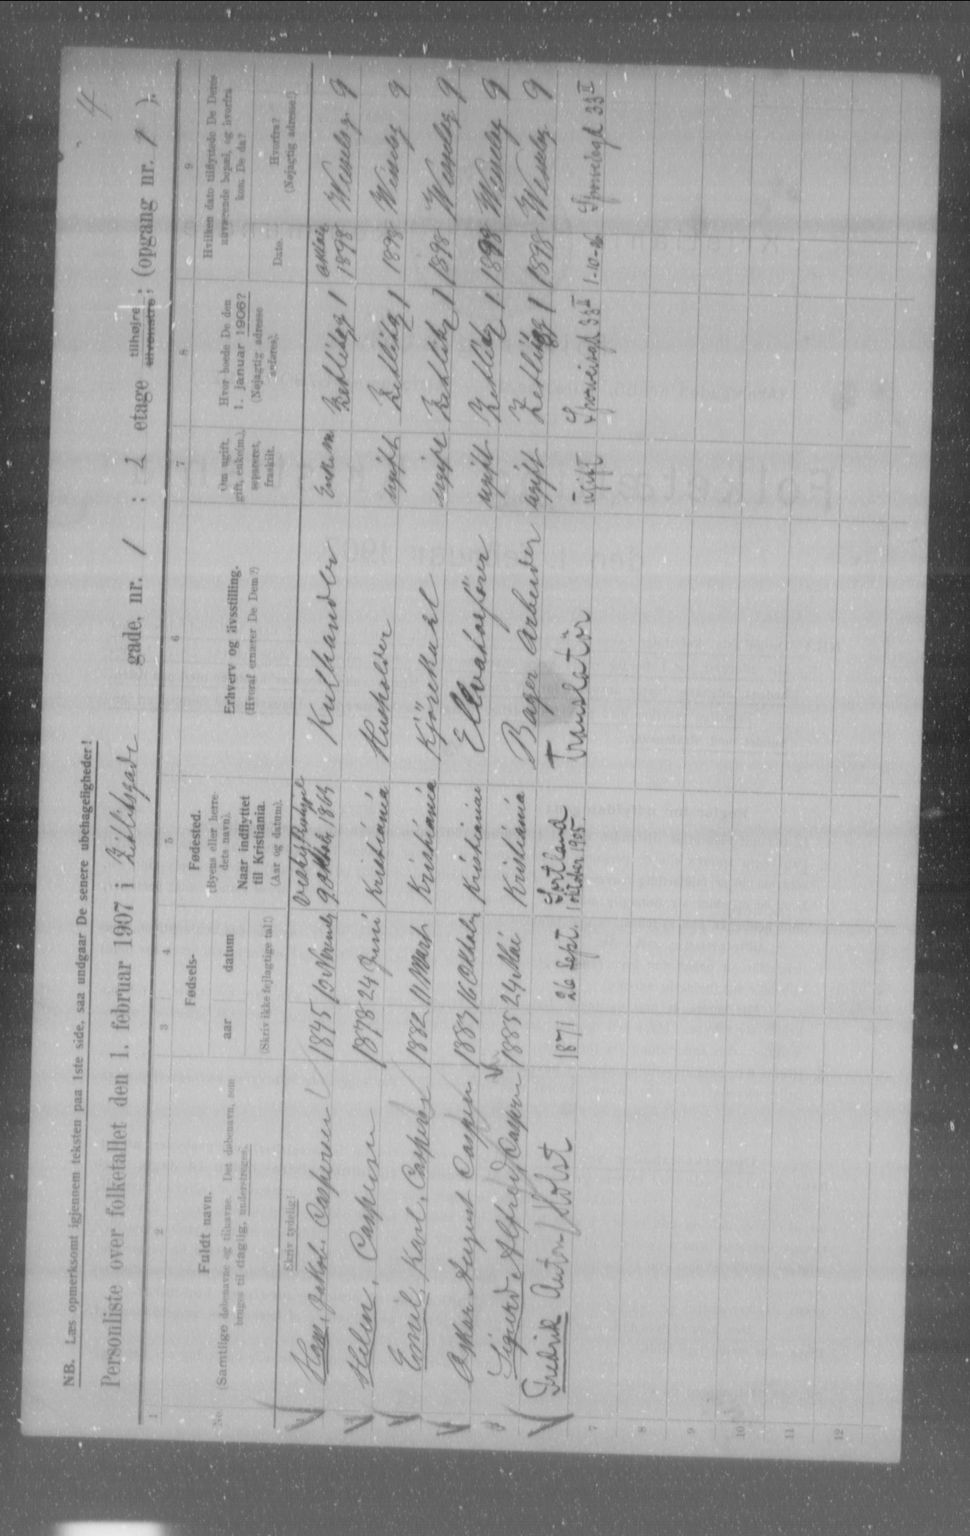 4
NB. Læs opmerksomt igjennem teksten paa 1ste side, saa undgaar De senere ubehageligheder!
Personliste over folketallet den 1. februar 1907 i Zetlitzgade gade, nr. 1 ; 1 etage tilhøjre tilvenstre; (opgang nr. 1 ).
1 2 3 4 5 6 7 8 9
No. Fuldt navn. (Samtlige døbenavne og tilnavne. Det døbenavn, som bruges til daglig, understreges). Skriv tydelig!
Fødsels- aar datum (Skriv ikke fejlagtige tal!)
Fødested. (Byens eller herredets navn). Naar indflyttet til Kristiania. (Aar og datum).
Erhverv og livsstilling. (Hvoraf ernærer De Dem?)
Om ugift, gift, enke(m.), separeret, fraskilt.
Hvor boede De den 1. januar 1906? (Nøjagtig adresse anføres).
Hvilken dato tilflyttede De Deres nuværende bopæl, og hvorfra kom De da? Dato. Hvorfra? (Nøjagtig adresse!)
Hans Jakob Caspersen 1845 10 Novemb Kulhandler Enkem Zetlitzg 1 1898 Wesselsg 9
Helene Caspersen 1878 24 Juni Kristiania Husholder ugift Zetlitzg 1 1898 Wesselsg 9
Emil Karl Caspersen 1882 11 Marts Kristiania Kjørekarl ugift Zetlitzg 1 1898 Wesselsg 9
Oskar August Caspersen 1883 16 Oktob Kristiania ugift Zetlitzg 1 1898 Wesselsg 9
Sigurd Alfred Caspersen 1885 24 Mai Kristiania Bager Arbeider ugift Zetlitzg 1 1898 Wesselsg 9
Fredrik Anton Holst 1871 26 Sept. Sortland oktober 1905 Translatør ugift 33 II 1-10-
7
8
9
10
11
12